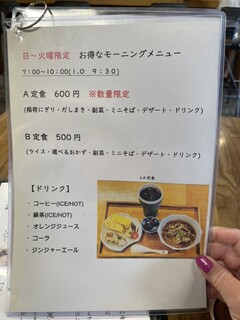 日～火曜限定　お得なモーニングメニュー
7:00～10:00(l.o 9:30)
A定食　600円　※数量限定
(稲荷にぎり・だしまき・副菜・ミニそば・デザート・ドリンク)
B定食　500円
(ライス・選べるおかず・副菜・ミニそば・デザート・ドリンク)
【ドリンク】
・コーヒー(ICE/HOT)
・緑茶(ICE/HOT)
・オレンジジュース
・コーラ
・ジンジャーエール
↓A定食